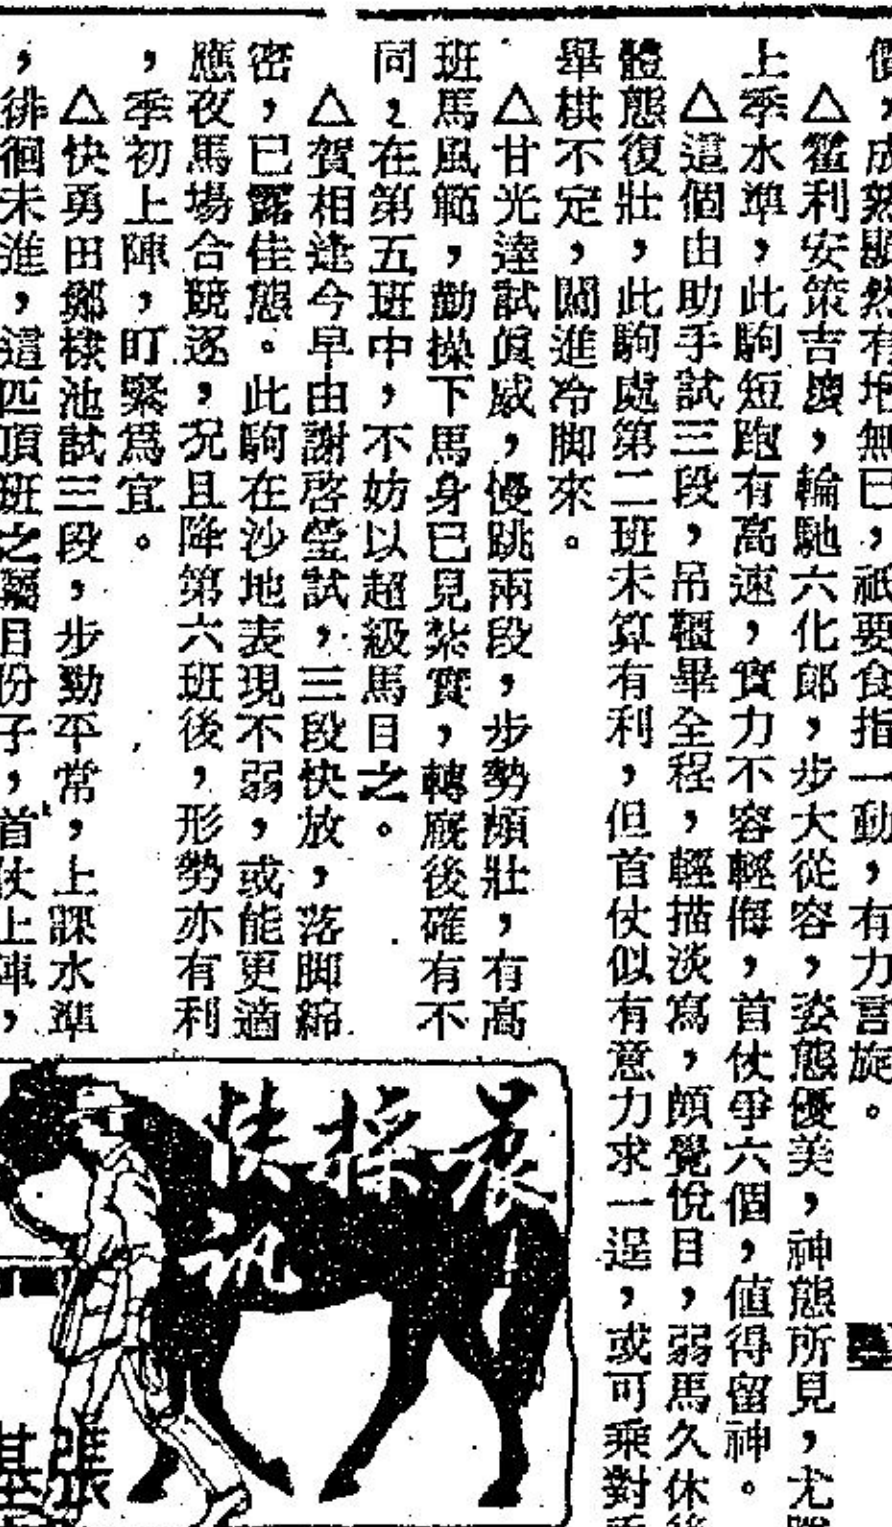 價，成熟顯然有增無已，祇要食指一動，有力言旋。
△霍利安策吉慶，輪馳六化郎，步大從容，姿態優美，神態所見，尤
上季水準，此駒短跑有高速，實力不容輕侮，首仗爭六個，值得留神。
△這個由助手試三段，吊韁畢全程，輕描淡寫，頗覺悅目，弱馬久休後
體態復壯，此駒處第二班未算有利，但首仗似有意力求一逞，或可乘對
舉棋不定，闖進冷脚來。
△甘光達試眞威，慢跳兩段，步勢頗壯，有高
班馬風範，勤操下馬身已見紮實，轉廐後確有不
同，在第五班中，不妨以超級馬目之。
△賀相達今早由謝啓瑩試，三段快放，落脚綿
密，已露佳態。此駒在沙地表現不弱，或能更適
應夜馬場合競逐，況且降第六班後，形勢亦有利
，季初上陣，盯緊爲宜。
△快勇田鄭棣池試三段，步勁平常，上課水準
，徘徊未進，這匹頂班之屬目份子，首仗上陣，
晨採快訊
張基